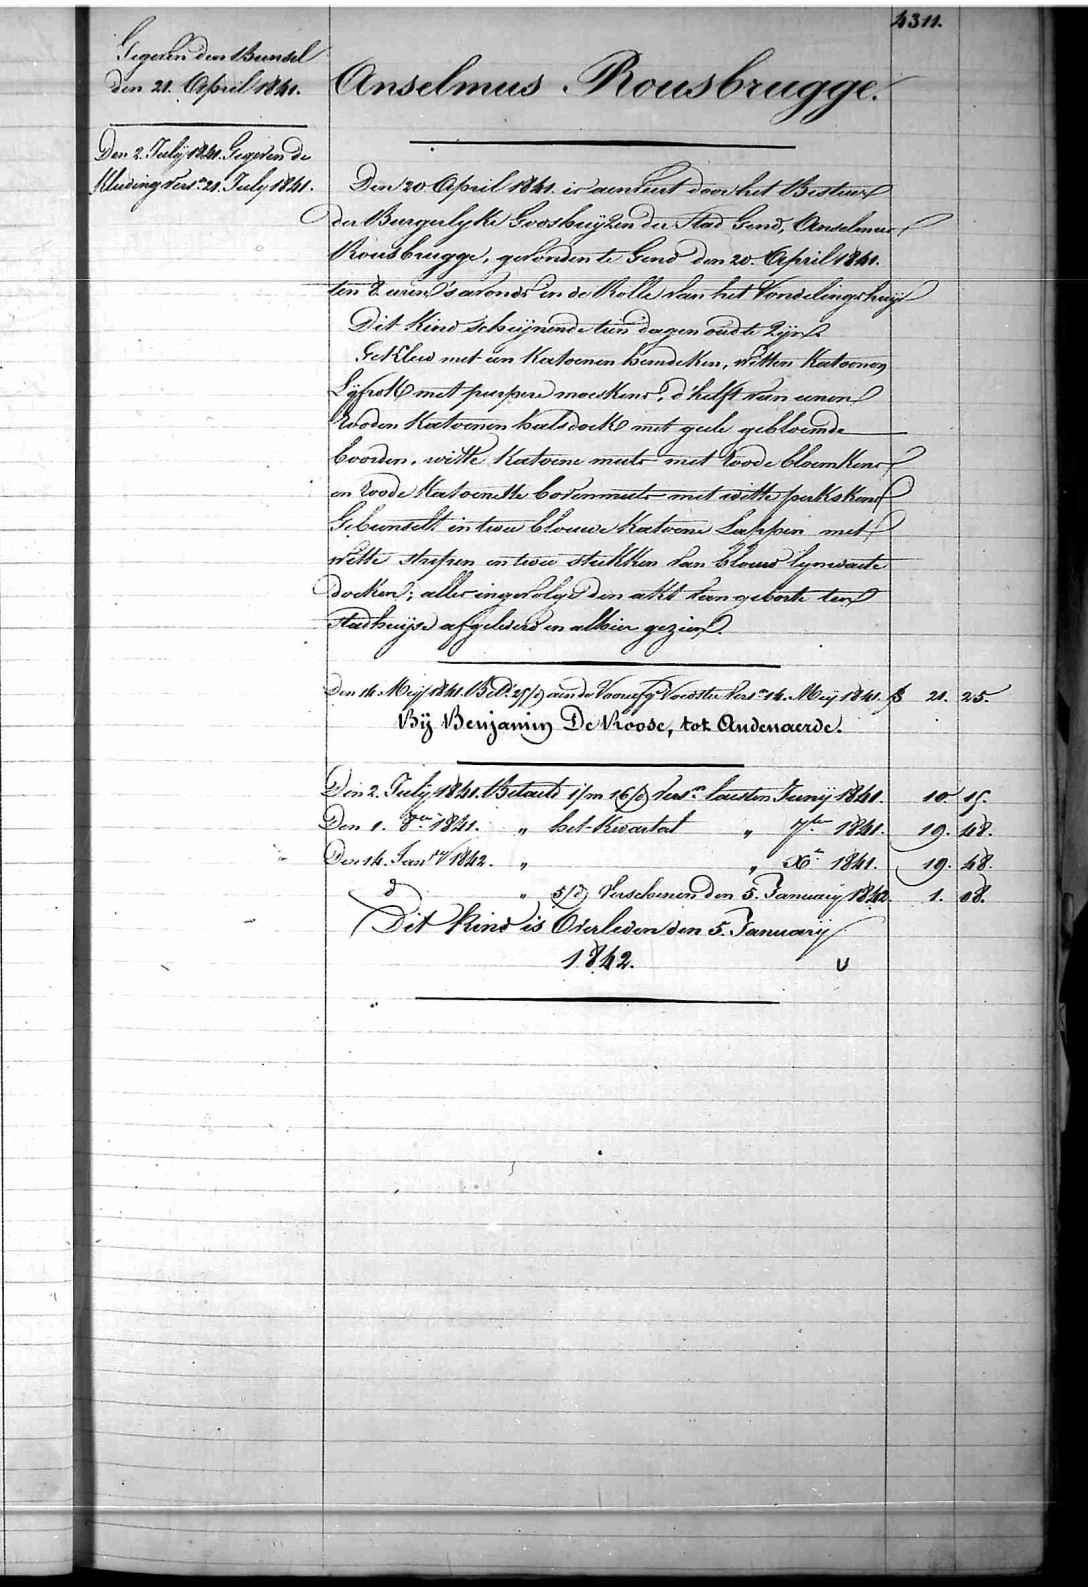 4311.
Gegeven den Bunsel
den 21. April 1841.
Den 2. Julij 1841. Gegeven de
Kleeding vers.en 21. July 1841.
Anselmus Rousbrugge.
Den 20 April 1841. is aenveert door het Bestier
der Burgerlyke Godshuijzen der Stad Gend, Anselmus
Rousbrugge, gevonden te Gend den 20. April 1841.
ten 8 uren 's avonds in de Rolle van het Vondelingshuij
Dit Kind scheijnende tien dagen oud te zijn
Gekleed met een Katoenen hemdeken, witten Katoenen
Lyfrok met purpere moeskens, d'helft van eenen
rooden Katoenen halsdoek met geele gebloemde
boorden, witte Katoene muts met roode bloemkens
en roode Katoenette bovenmuts met witte perkskens
Gebunselt in twee blouwe Katoene Lappen met
witte strepen en twee stukken van blouw lynwaete
doeken; alles ingevolge den akt van geboorte ten
stadhuijse afgeleverd en alhier gezien.
Den 14. Meij 1841. Bet.d 25/d aen de Voorafg. Voedster Vers.en 14. Meij 1841. f 21. 25.
Bij Benjamin De Roose, tot Audenaerde.
Den 2. July 1841. Betaeld 1/m 16/d Vers.en laesten Junij 1841. 10. 15.
Den 1. 8ber 1841. " het Kwartal " 7ber 1841. 19. 48.
Den 14. Janry 1842. " " Xber 1841. 19. 48.
d " 5/d Verschenen den 5. January 1842. 1. 08.
Dit Kind is Overleden den 5. Januarij
1842.